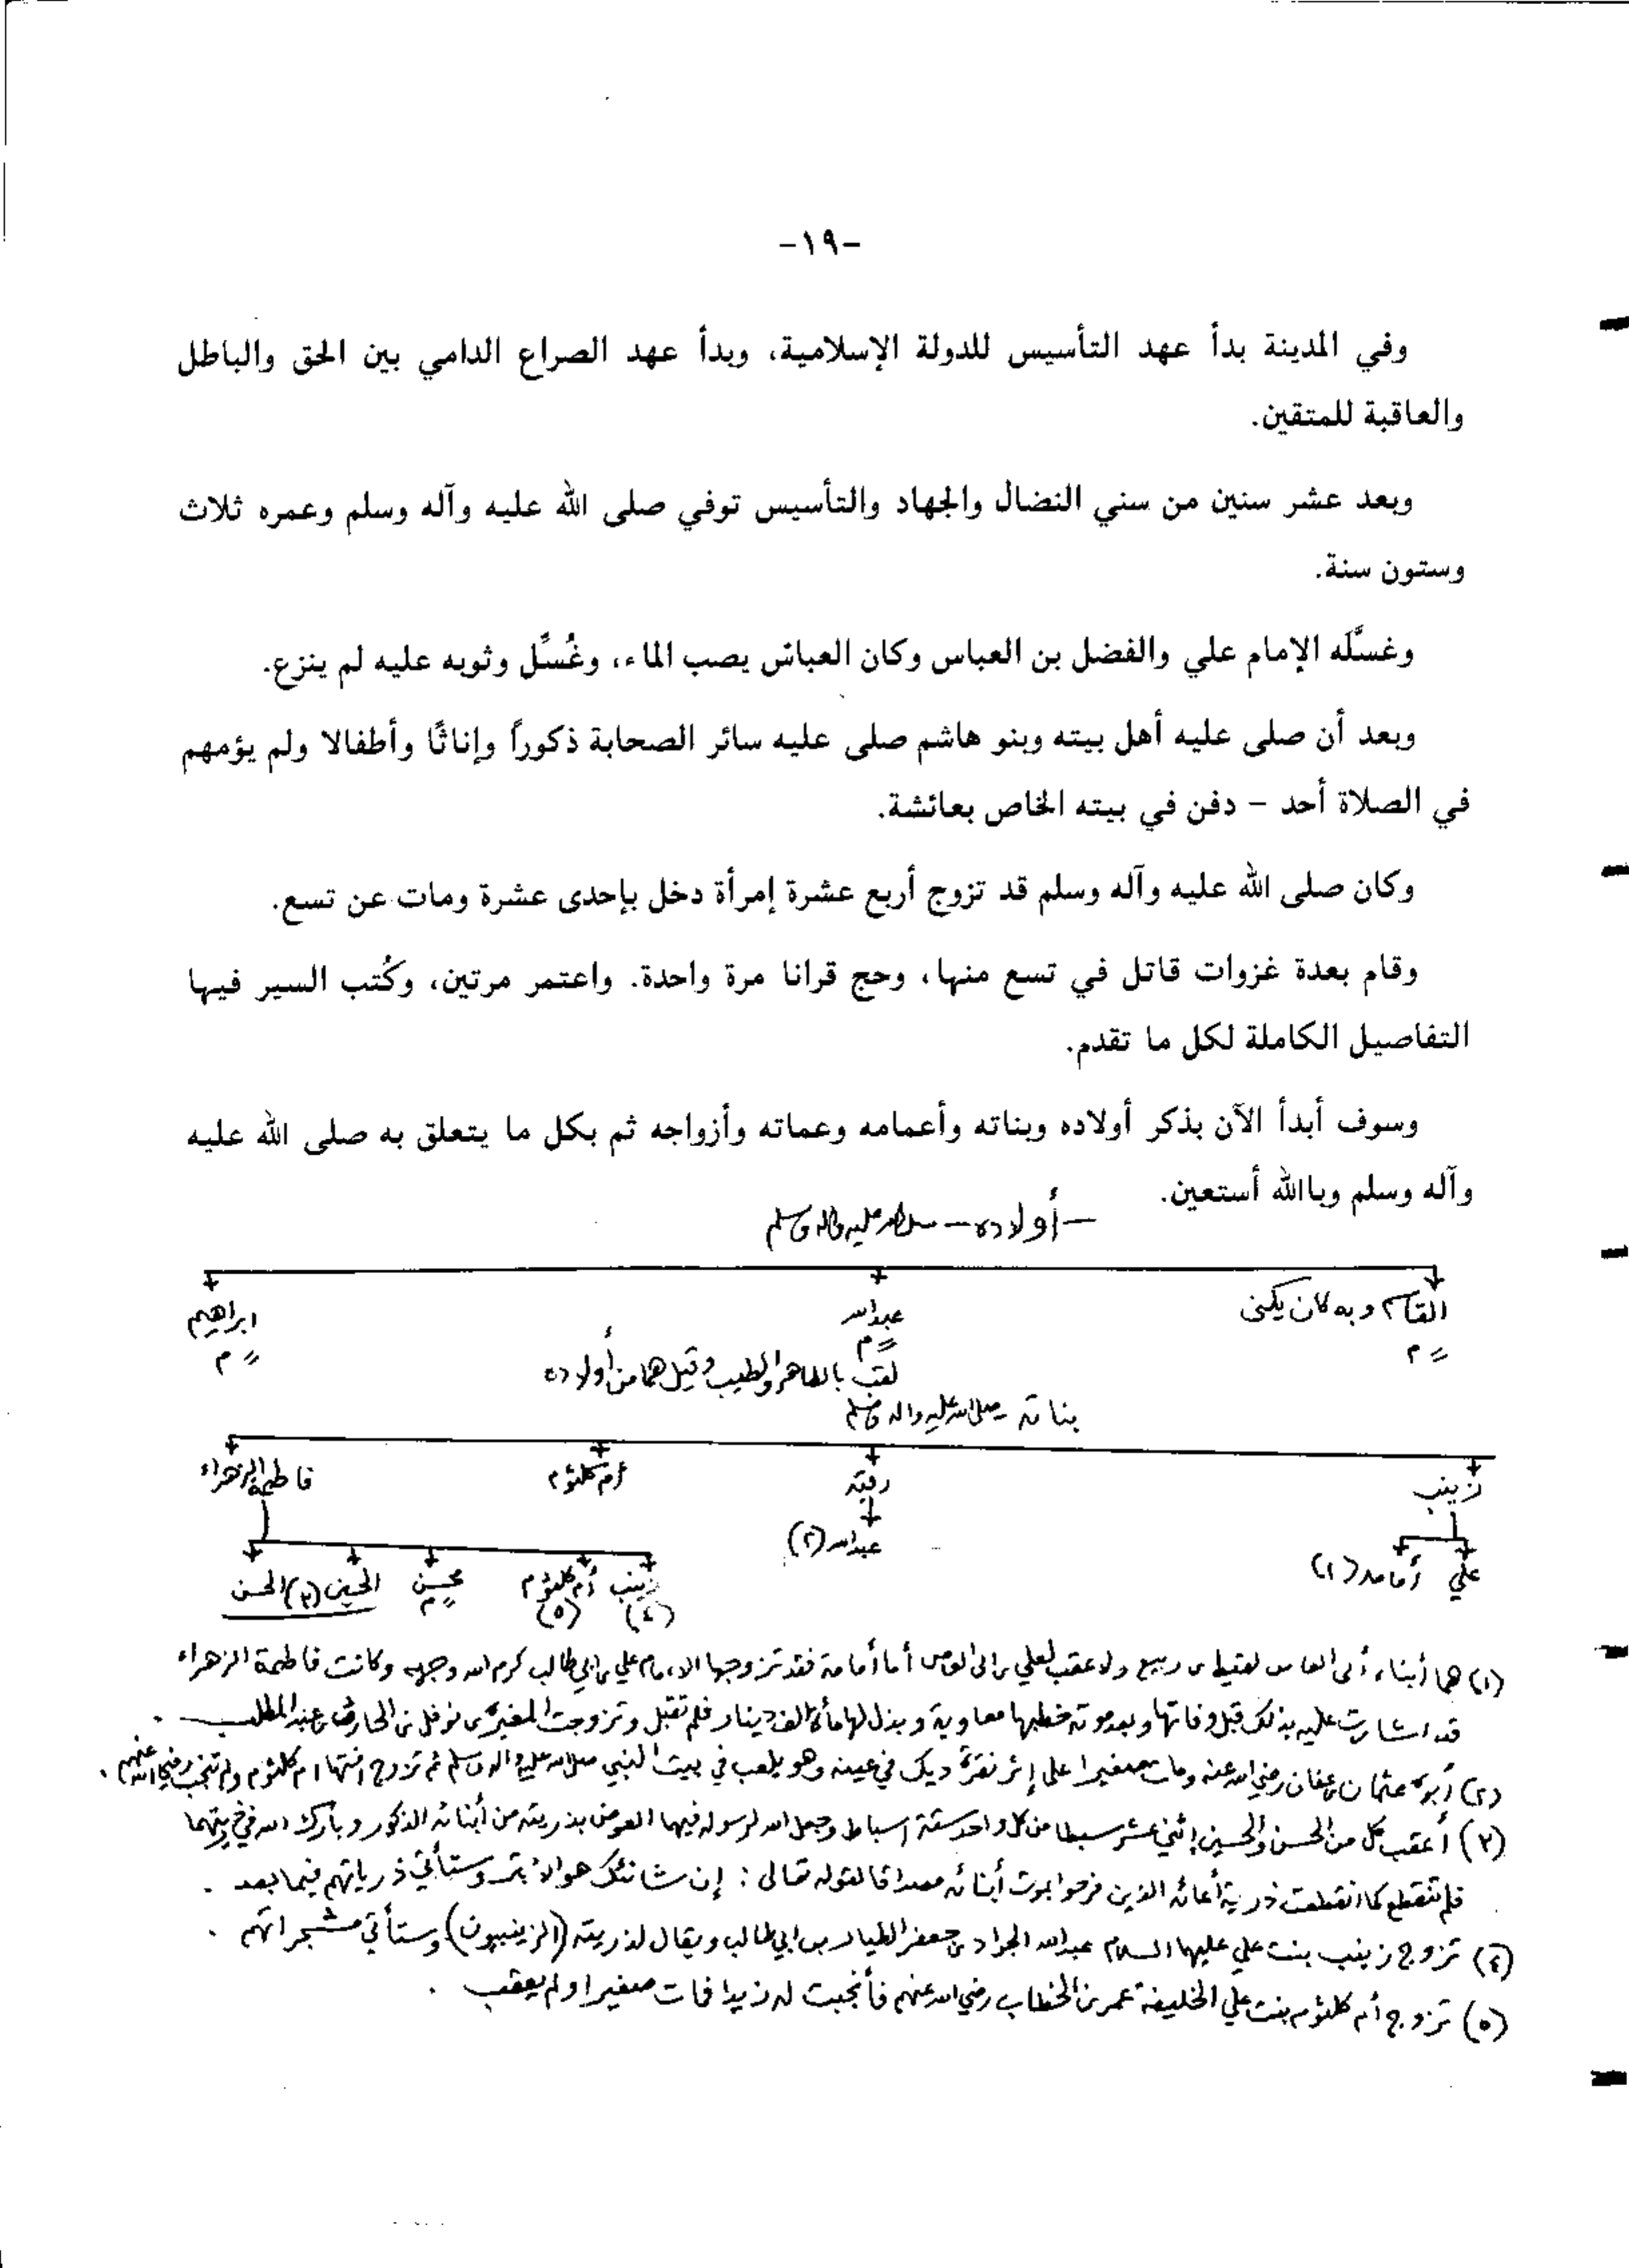 -١٩-
وفي المدينة بدأ عهد التأسيس للدولة الإسلامية، وبدأ عهد الصراع الدامي بين الحق والباطل
والعاقبة للمتقين.
وبعد عشر سنين من سني النضال والجهاد والتأسيس توفي صلى الله عليه وآله وسلم وعمره ثلاث
وستون سنة.
وغسَّله الإمام علي والفضل بن العباس وكان العباس يصب الماء، وغُسِّل وثوبه عليه لم ينزع.
وبعد أن صلى عليه أهل بيته وبنو هاشم صلى عليه سائر الصحابة ذكوراً وإناثًا وأطفالا ولم يؤمهم
في الصلاة أحد – دفن في بيته الخاص بعائشة.
وكان صلى الله عليه وآله وسلم قد تزوج أربع عشرة إمرأة دخل بإحدى عشرة ومات عن تسع.
وقام بعدة غزوات قاتل في تسع منها، وحج قرانا مرة واحدة. واعتمر مرتين، وكُتب السير فيها
التفاصيل الكاملة لكل ما تقدم.
وسوف أبدأ الآن بذكر أولاده وبناته وأعمامه وعماته وأزواجه ثم بكل ما يتعلق به صلى الله عليه
وآله وسلم وباالله أستعين.
– أولاده – صلى الله عليه واله وسلم
القاسم وبه كان يكنى عبدالله ابراهيم
م م م
لقب بالطاهر والطيب وقيل هما من أولاده
بناته صلى الله عليه واله وسلم
زينب رقية أم كلثوم فاطمة الزهراء
علي أمامه (١) عبدالله (٢) زينب (٤) أم كلثوم (٥) محسن م الحسين (٣) الحسن
(١) هما أبناء أبى العاص لقيط بن ربيع ولا عقب لعلي بن ابى العاص أما أمامة فقد تزوجها الامام علي بن ابي طالب كرم الله وجهه وكانت فاطمة الزهراء
قد اشارت عليه بذلك قبل وفاتها وبعد موته خطبها معاوية وبذل لها مأة الف دينار فلم تقبل وتزوجت المغيرة بن نوفل بن الحارث بن عبد المطلب .
(٢) أبوه عثمان بن عفان رضي الله عنه ومات صغيرا على إثر نقرة ديك في عينه وهو يلعب في بيت النبي صلى الله عليه واله وسلم ثم تزوج اختها ام كلثوم ولم تنجب رضي الله عنهم .
(٣) أعقب كل من الحسن والحسين إثني عشر سبطا من كل واحد ستة اسباط وجعل الله لرسوله فيهما العوض بذريته من أبنائه الذكور وبارك الله في ذريتهما
فلم تنقطع كما انقطعت ذرية أعدائه الذين فرحوا بموت أبنائه مصداقا لقوله تعالى : إن شانئك هو الأبتر وستأتي ذرياتهم فيما بعد .
(٤) تزوج زينب بنت علي عليها السلام عبدالله الجواد بن جعفر الطيار بن ابي طالب ويقال لذريته (الزينبيون) وستأتي مشجراتهم .
(٥) تزوج أم كلثوم بنت علي الخليفة عمر بن الخطاب رضي الله عنهم فأنجبت له زيدا فمات صغيرا ولم يعقب .